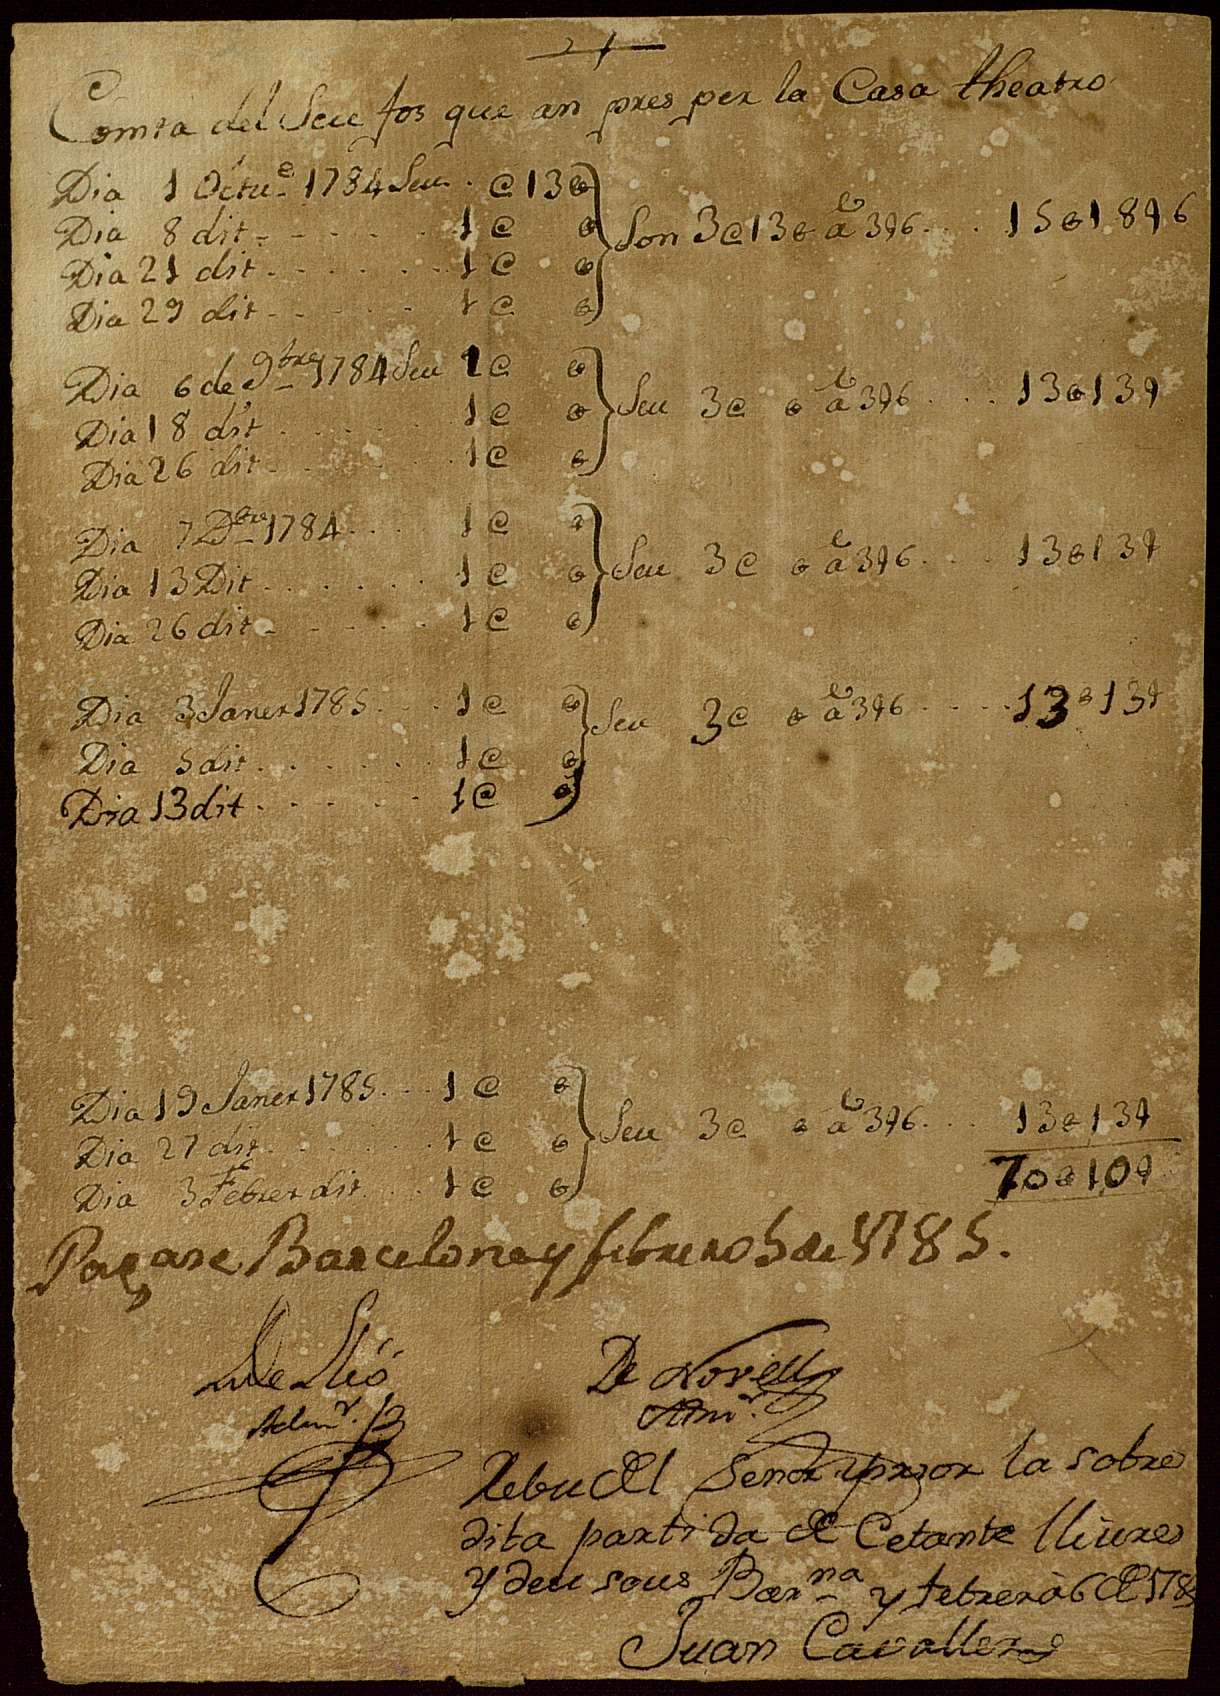 Compta del Seu fos que an pres per la Casa theatro
Dia 1 Octue 1784 Seu . c 13 ℔
Dia 8 dit 1 c ℔
Dia 21 dit 1 c ℔
Dia 29 dit 1 c ℔
Son 3 c 13 ℔ â 396 15 ℔ 1 8 6
Dia 6 de 9bre 1784 Seu 1 c ℔
Dia 18 dit 1 c ℔
Dia 26 dit 1 c ℔
Seu 3 c ℔ â 396 13 ℔ 13 9
Dia 7 Dbre 1784 1 c ℔
Dia 13 Dit 1 c ℔
Dia 26 dit 1 c ℔
Seu 3 c ℔ â 396 13 ℔ 13 9
Dia 3 Janer 1785 1 c ℔
Dia 5 dit 1 c ℔
Dia 13 dit 1 c ℔
Seu 3 c ℔ â 396 13 ℔ 13 9
Dia 19 Janer 1785 1 c ℔
Dia 27 dit 1 c ℔
Dia 3 Febrer dit 1 c ℔
Seu 3 c ℔ â 396 13 ℔ 13 9
70 ℔ 10 9
Pagase Barcelona y febrero 5 de 1785.
De Llió De Novell
Admr. Admr.
Rebu del Senor prior la sobre
dita partida de Cetante lliures
y deu sous Barna y febrero 6 de 1785
Juan Cavallero